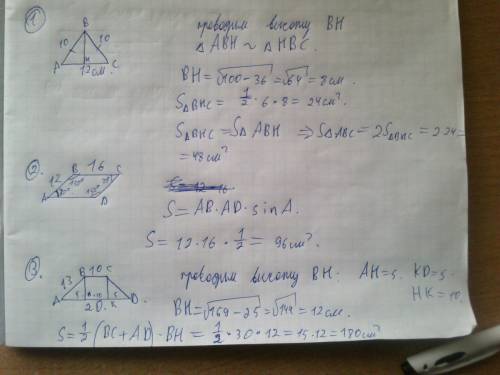 1
B
10 10
A H C
12 см.
проводим высоту BH
△ABH ~ △HBC.
BH = √100-36 = √64 = 8 см.
S△BHC = 1/2 · 6 · 8 = 24 см².
S△BHC = S△ABH ⇒ S△ABC = 2S△BHC = 2·24 =
= 48 см²
2.
B 16 C
12
A D
S = AB · AD · sin A.
S = 12 · 16 · 1/2 = 96 см².
3.
B 10 C
13
A 5 10 5 D.
20. K
проводим высоту BH: AH=5. KD=5.
HK=10.
BH = √169-25 = √144 = 12 см.
S = 1/2 (BC + AD) · BH = 1/2 · 30 · 12 = 15 · 12 = 180 см²